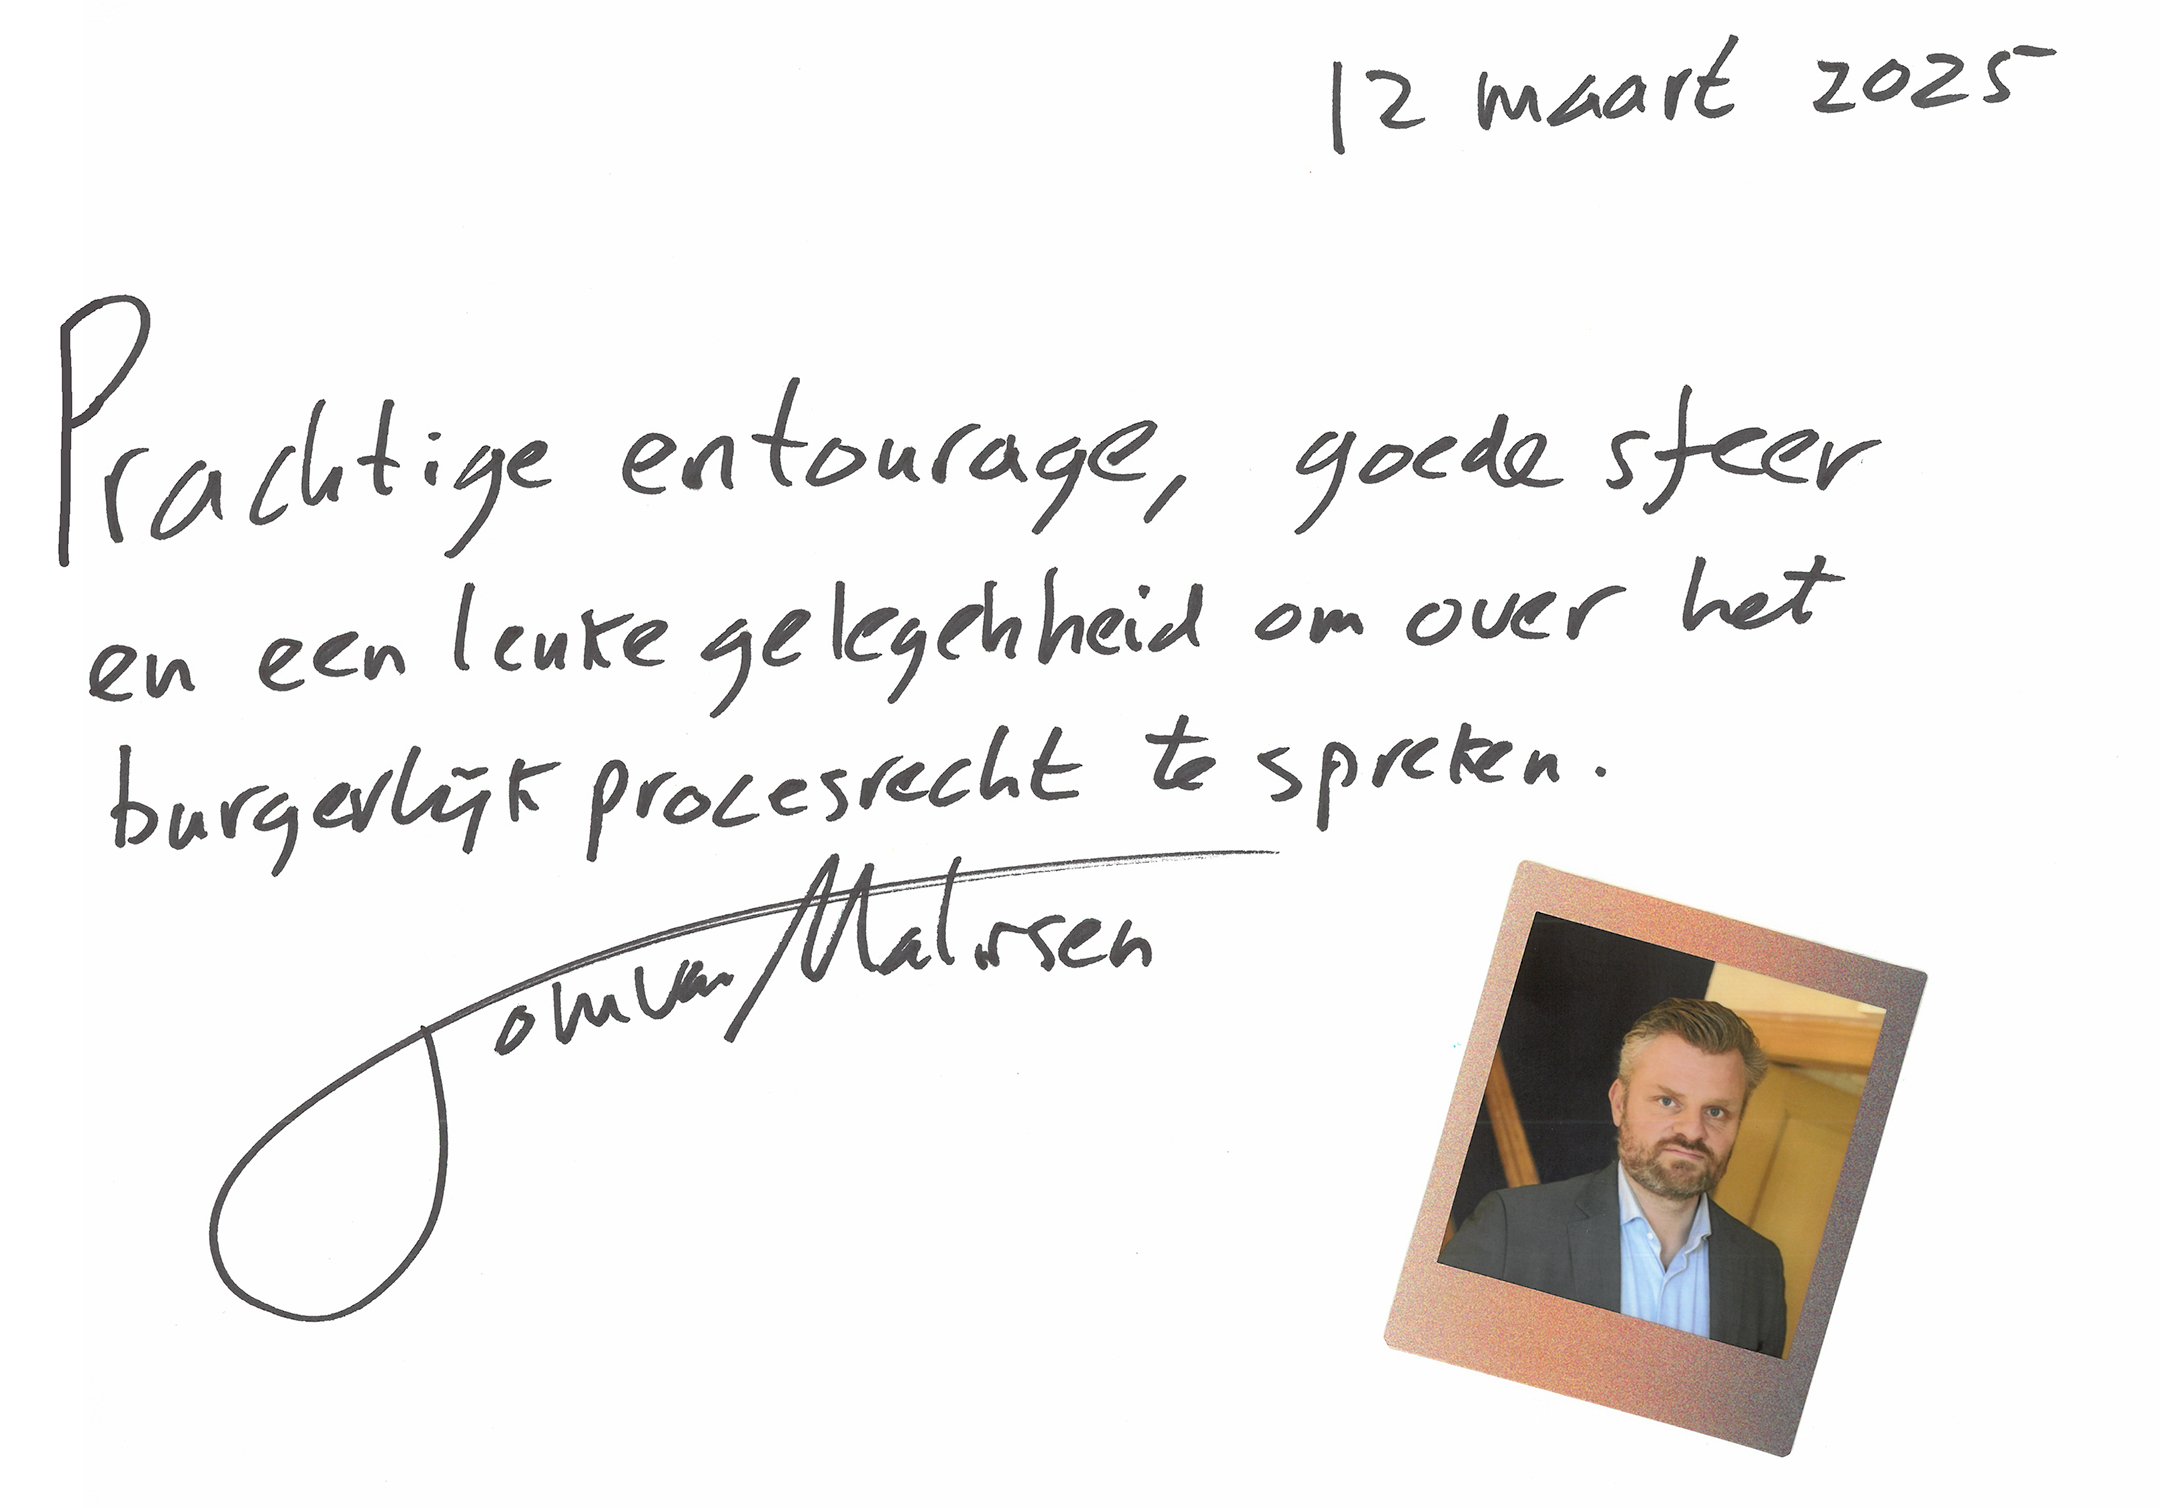 12 maart 2025
Prachtige entourage, goede sfeer
en een leuke gelegenheid om over het
burgerlijk procesrecht te spreken.
van